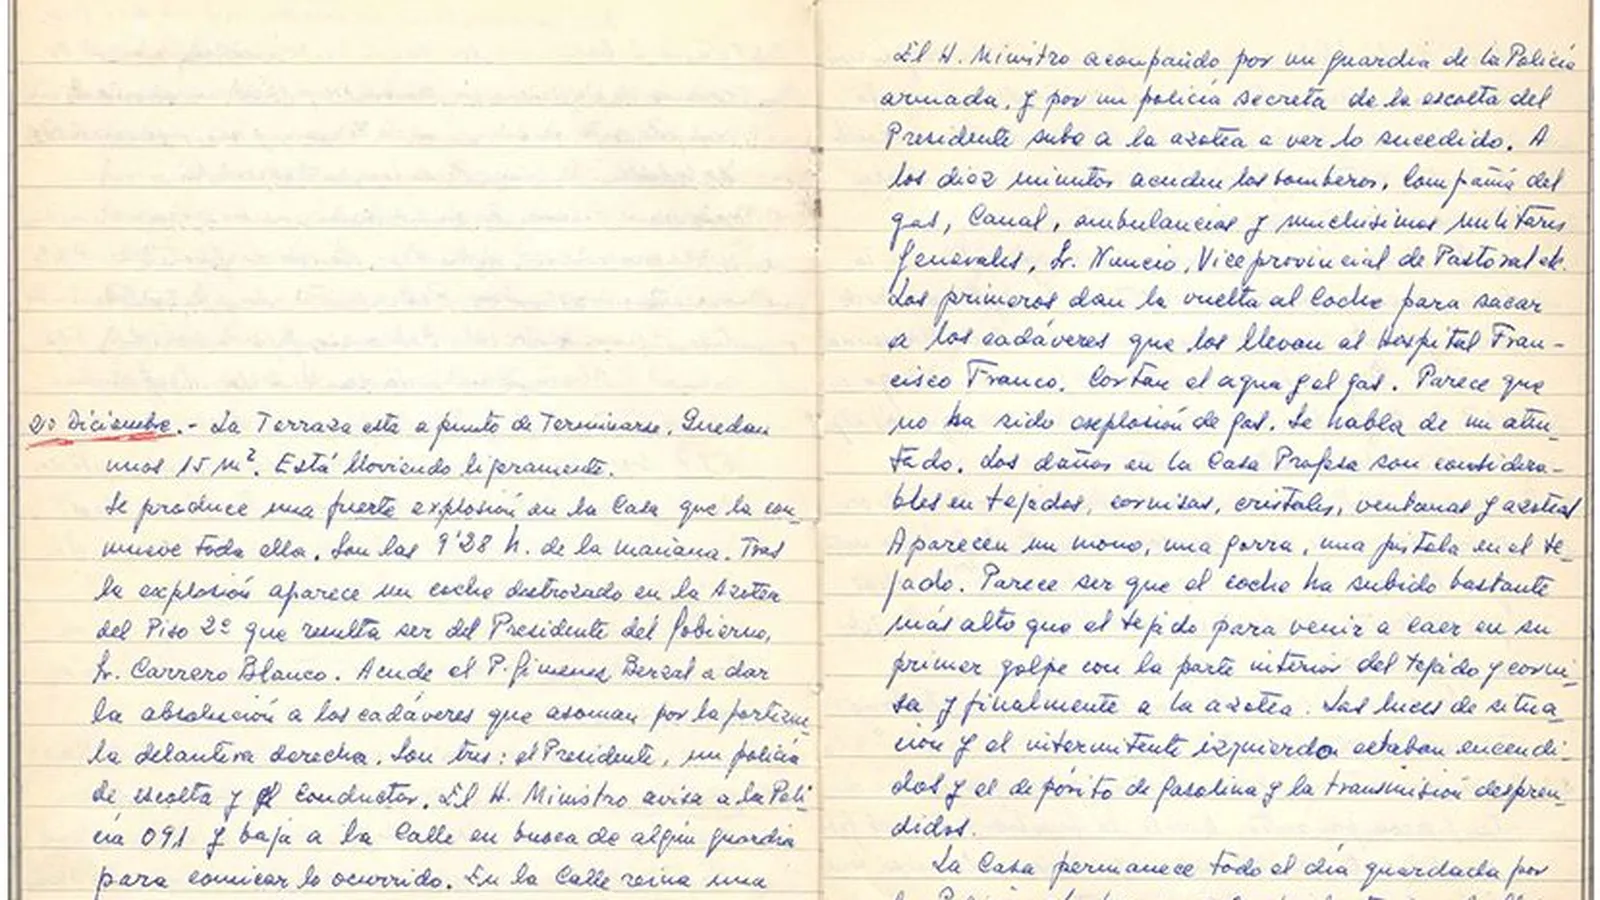 20 Diciembre.- La Terraza esta a punto de Terminarse. Quedan
unos 15 m². Está lloviendo ligeramente.
Se produce una fuerte explosión en la Casa que la con-
mueve toda ella. Son las 9'28 h. de la mañana. Tras
la explosión aparece un coche destrozado en la Azotea
del Piso 2º que resulta ser del Presidente del Gobierno,
Sr. Carrero Blanco. Acude el P. Gimenez Berzal a dar
la absolución a los cadáveres que asoman por la portezue-
la delantera derecha. Son tres: el Presidente, un policía
de escolta y el conductor. El H. Ministro avisa a la Poli-
cía 091 y baja a la Calle en busca de algún guardia
para comicar lo ocurrido. En la Calle reina una
El H. Ministro acompañdo por un guardia de la Policía
armada, y por un policía secreta de la escolta del
Presidente sube a la azotea a ver lo sucedido. A
los diez minutos acuden los bomberos, Compañía del
gas, Canal, ambulancias y muchísimos militares
Generales, Sr. Nuncio, Viceprovincial de Pastoral etc.
Los primeros dan la vuelta al Coche para sacar
a los cadáveres que los llevan al Hospital Fran-
cisco Franco. Cortan el agua y el gas. Parece que
no ha sido explosión de gas. Se habla de un aten-
tado. Los daños en la Casa Profesa son considera-
bles en tejados, cornisas, cristales, ventanas y azoteas
Aparecen un mono, una gorra, una pistola en el te-
jado. Parece ser que el coche ha subido bastante
más alto que el tejado para venir a caer en su
primer golpe con la parte interior del tejado y corni-
sa y finalmente a la azotea. Las luces de situa-
ción y el intermitente izquierdo estaban encendi-
dos y el depósito de gasolina y la transmisión despren-
didos.
La Casa permanece todo el día guardada por